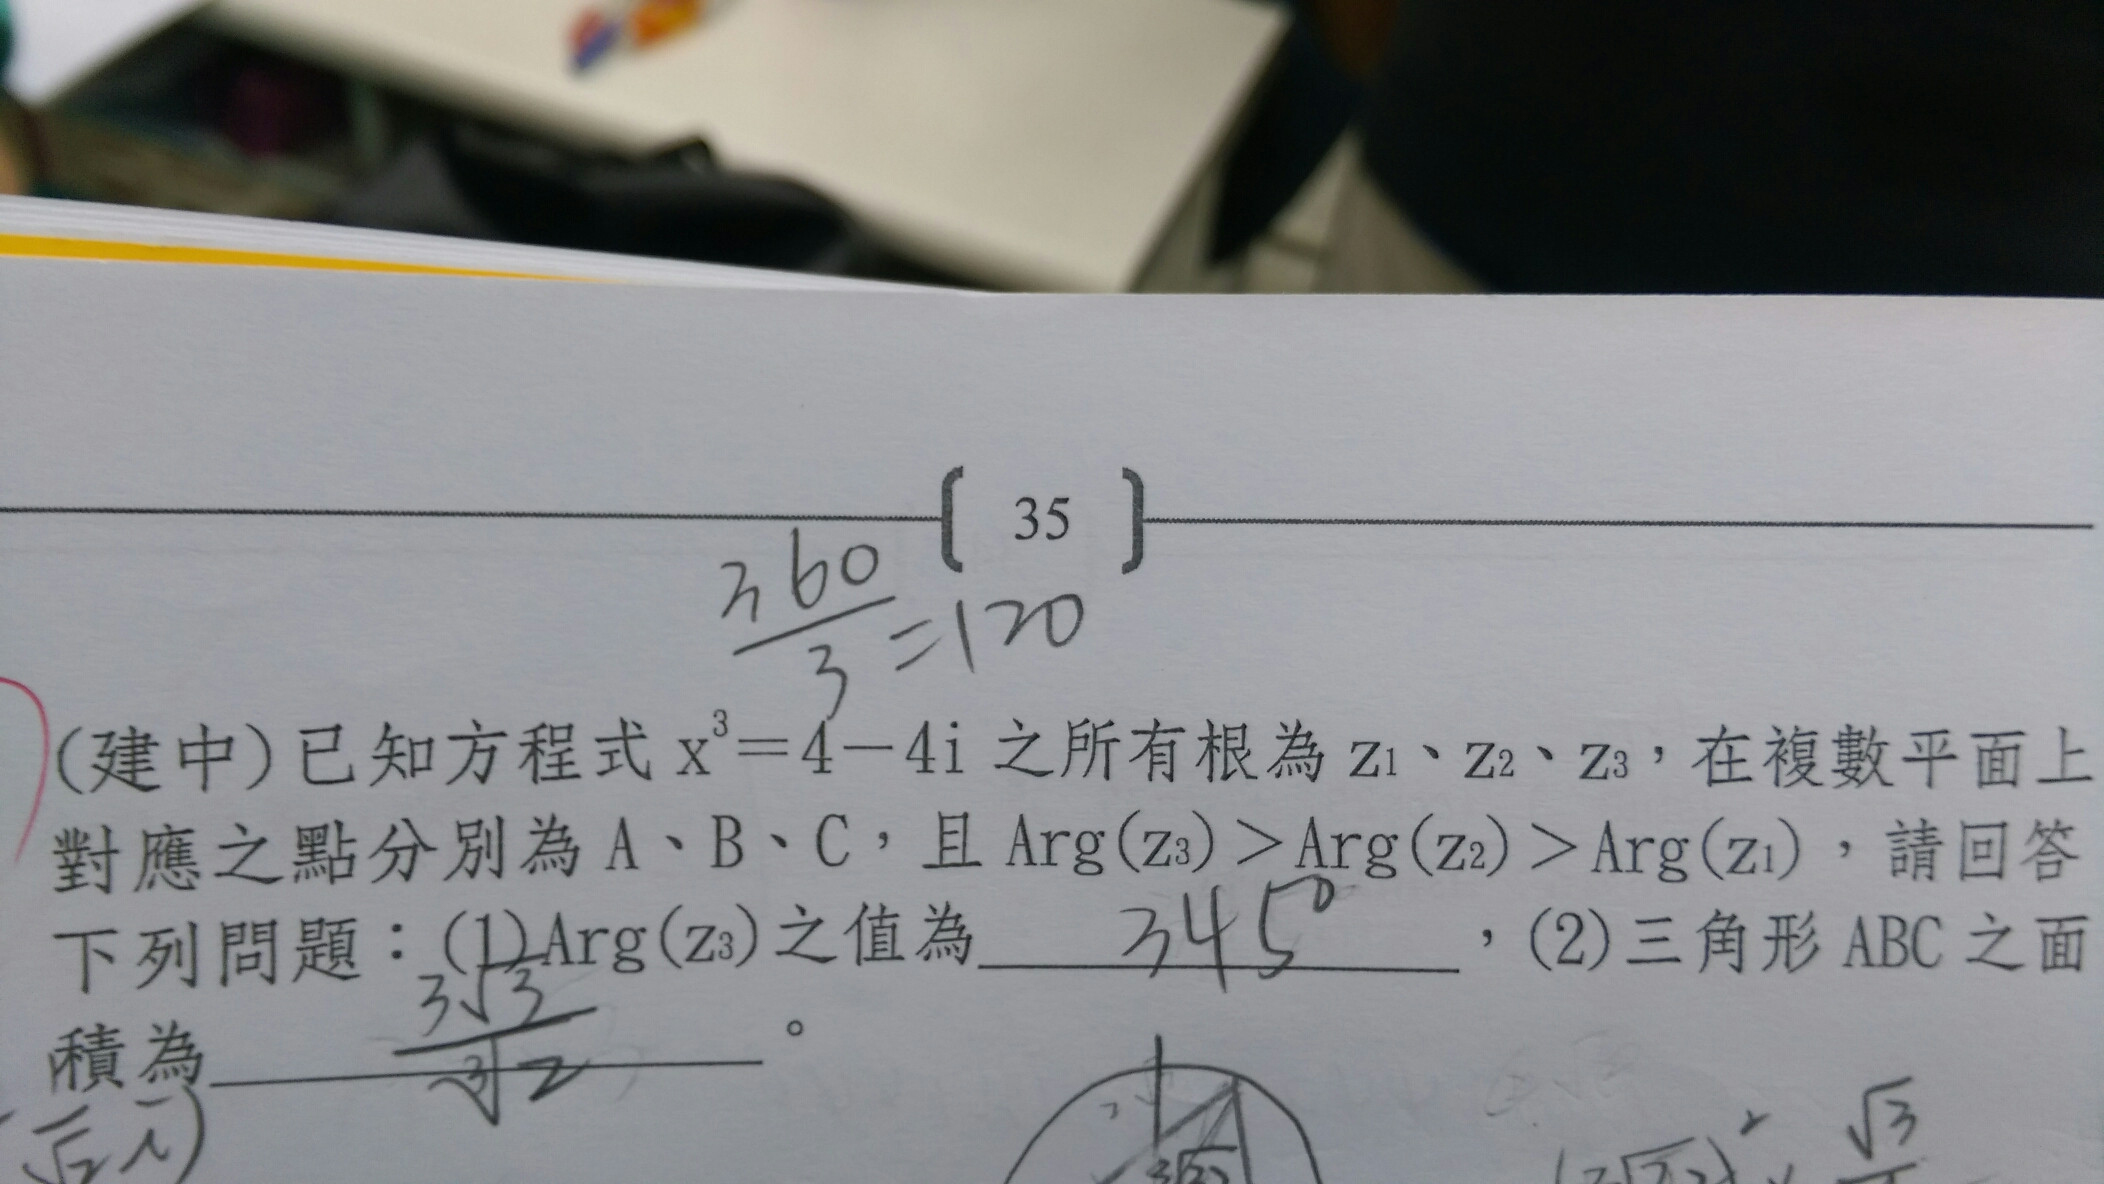 35
360/3=120
(建中)已知方程式 x³=4-4i 之所有根為 z₁、z₂、z₃，在複數平面上
對應之點分別為 A、B、C，且 Arg(z₃)>Arg(z₂)>Arg(z₁)，請回答
下列問題：(1)Arg(z₃)之值為 345° ，(2)三角形 ABC 之面
積為 3√3/∛2 。